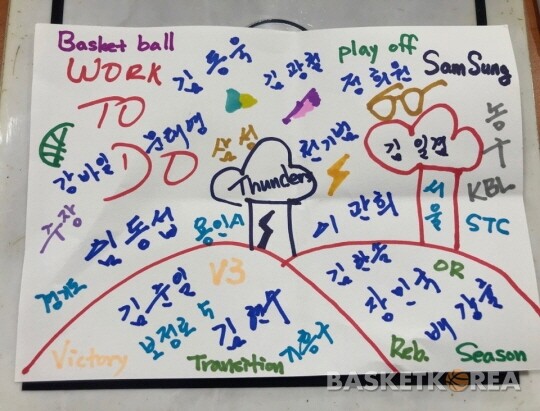 Basket ball
play off
WORK
김동욱
김광철
정희원
SamSung
TO
DO
문태영
삼성
천기범
김일겸
농구
강바일
Thunders
서울
KBL
STC
주장
임동섭
용인A
이관희
경기도
V3
김준일
김한솔
OR
장민국
보정로5
김현수
배강률
기흥구
Victory
Transition
Reb.
Season
BASKETKOREA